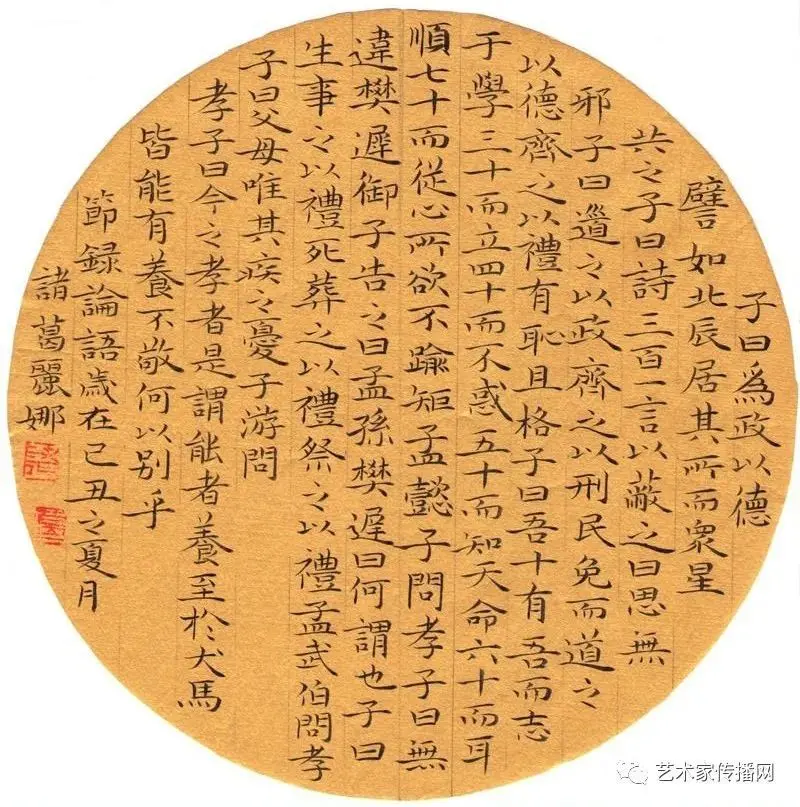 子曰爲政以德
譬如北辰居其所而衆星
共之子曰詩三百一言以蔽之曰思無
邪子曰道之以政齊之以刑民免而道之
以德齊之以禮有恥且格子曰吾十有吾而志
于學三十而立四十而不惑五十而知天命六十而耳
順七十而從心所欲不踰矩孟懿子問孝子曰無
違樊遲御子告之曰孟孫樊遲曰何謂也子曰
生事之以禮死葬之以禮祭之以禮孟武伯問孝
子曰父母唯其疾之憂子游問
孝子曰今之孝者是謂能者養至於犬馬
皆能有養不敬何以別乎
節録論語歲在己丑之夏月
諸葛麗娜
艺术家传播网